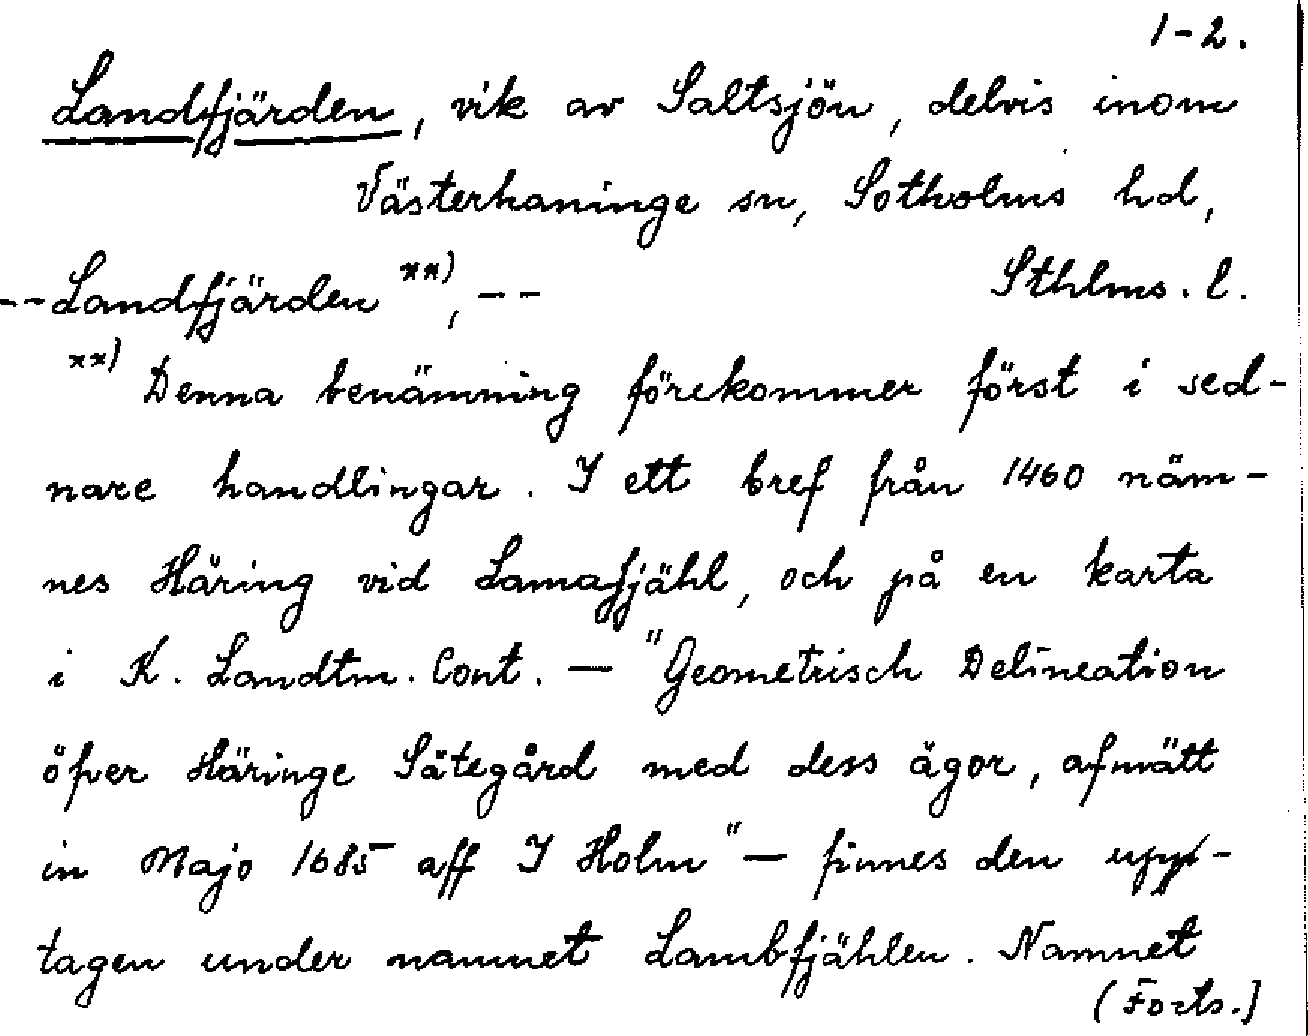 1-2.
Landfjärden, vik av Saltsjön, delvis inom
Västerhaninge sn, Sotholms hd,
--Landfjärden xx), -- Sthlms. l.
xx) Denna benämning förekommer först i sed-
nare handlingar. I ett bref från 1460 näm-
nes Häring vid Lamafjähl, och på en karta
i K. Landtm. Cont. — "Geometrisch Delineation
öfver Häringe Sätegård med dess ägor, afmätt
in Majo 1685 aff I Holm" — finnes den upp-
tagen under namnet Lambfjählen. Namnet
(Forts.)